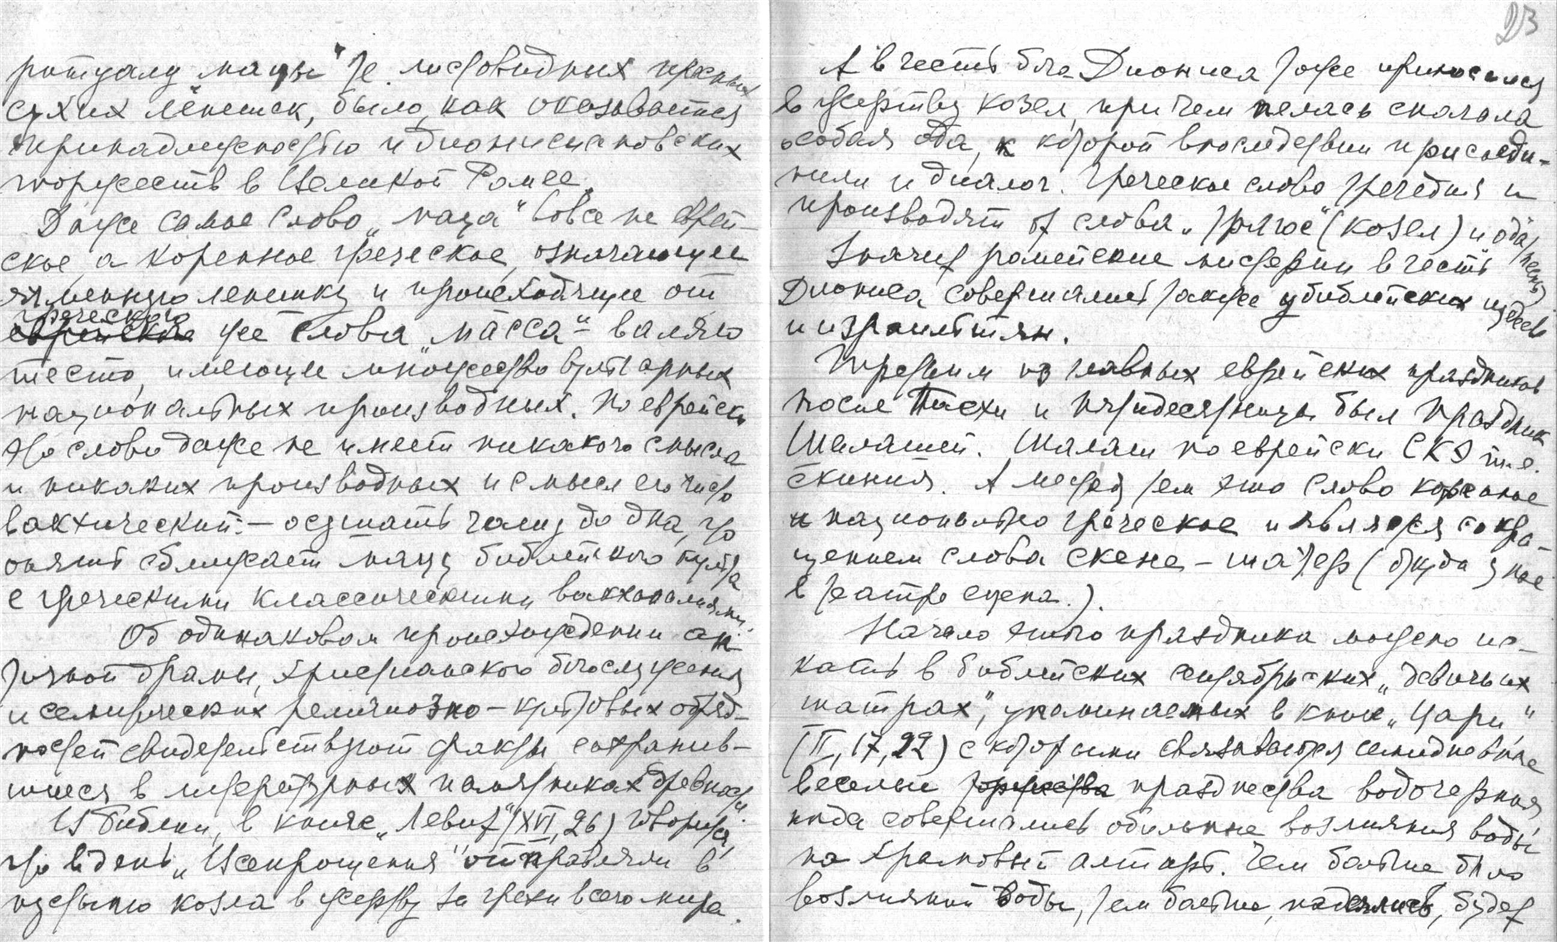 ритуалу мацы" т.е. листовидных пресных
сухих лепешек, было, как оказывается
принадлежностью и дионисиановских
торжеств в Великой Ромее.
Даже самое слово „маца" вовсе не еврей-
ское, а коренное греческое, означающее
ячменную лепешку и происходящее от
греческого
еврейского же слова „масса" – валяю
тесто, имеющее множество вульгарных
национальных производных. По еврейски
это слово даже не имеет никакого смысла
и никаких производных и смысл его чисто
вакхический: – осушать чашу до дна, что
опять сближает мацу библейского культа
с греческими классическими вакханалиями.
Об одинаковом происхождении ан-
тичной драмы, христианского богослужения
и семитических религиозно – культовых обряд-
ностей свидетельствуют факты сохранив-
шиеся в литературных памятниках древности.
Из библии, в книге „Левит" (XVI, 26) говорится,
что в день „Всепрощения" отправляли в
пустыню козла в жертву за грехи всего мира.
23
А в честь бога Диониса тоже приносился
в жертву козел, при чем пелась сначала
особая ода, к которой впоследствии присоеди-
нили и диалог. Греческое слово трагедия и
производят от слова „трагос" (козел) и ода (песнь)
Значит ромейские мистерии в честь
Диониса совершались также у библейских иудеев
и израильтян.
Третьим из главных еврейских праздников
после Пасхи и пятидесятницы был праздник
Шалашей. Шалаш по еврейски СКЭ т.е.
скиния. А между тем это слово коренное
и национально греческое и является сокра-
щением слова скене – шатер (откуда у нас
в театре сцена.).
Начало этого праздника можно ис-
кать в библейских сентябрьских „девичьих
шатрах", упоминаемых в книге „Цари"
(II, 17, 22) с которыми связывается семидневные
веселые торжества празднества водочерпания
когда совершались обильные возлияния воды
на храмовый алтарь. Чем больше было
возлияний воды, тем больше, надеялись, будет